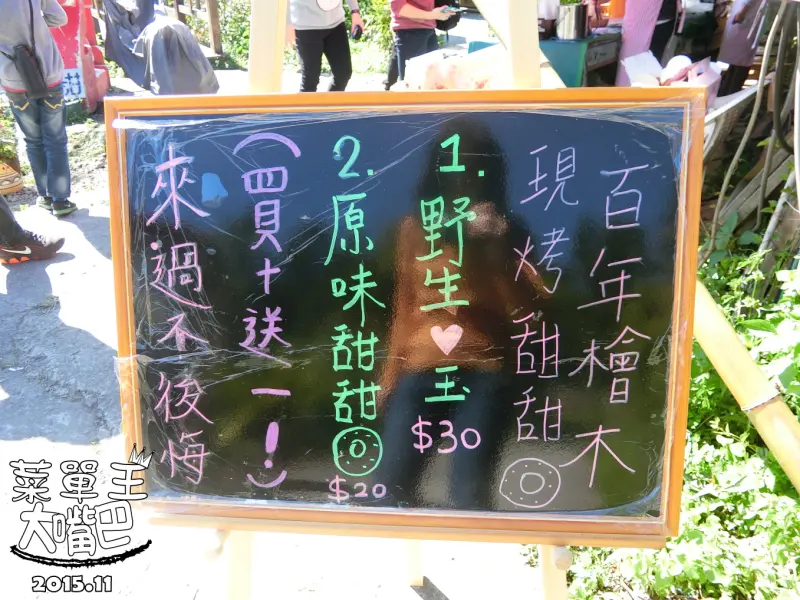 百年檜木
現烤甜甜
1. 野生♥玉
$30
2. 原味甜甜
$20
(買十送一!)
來過不後悔
菜單王
大嘴巴
2015.11